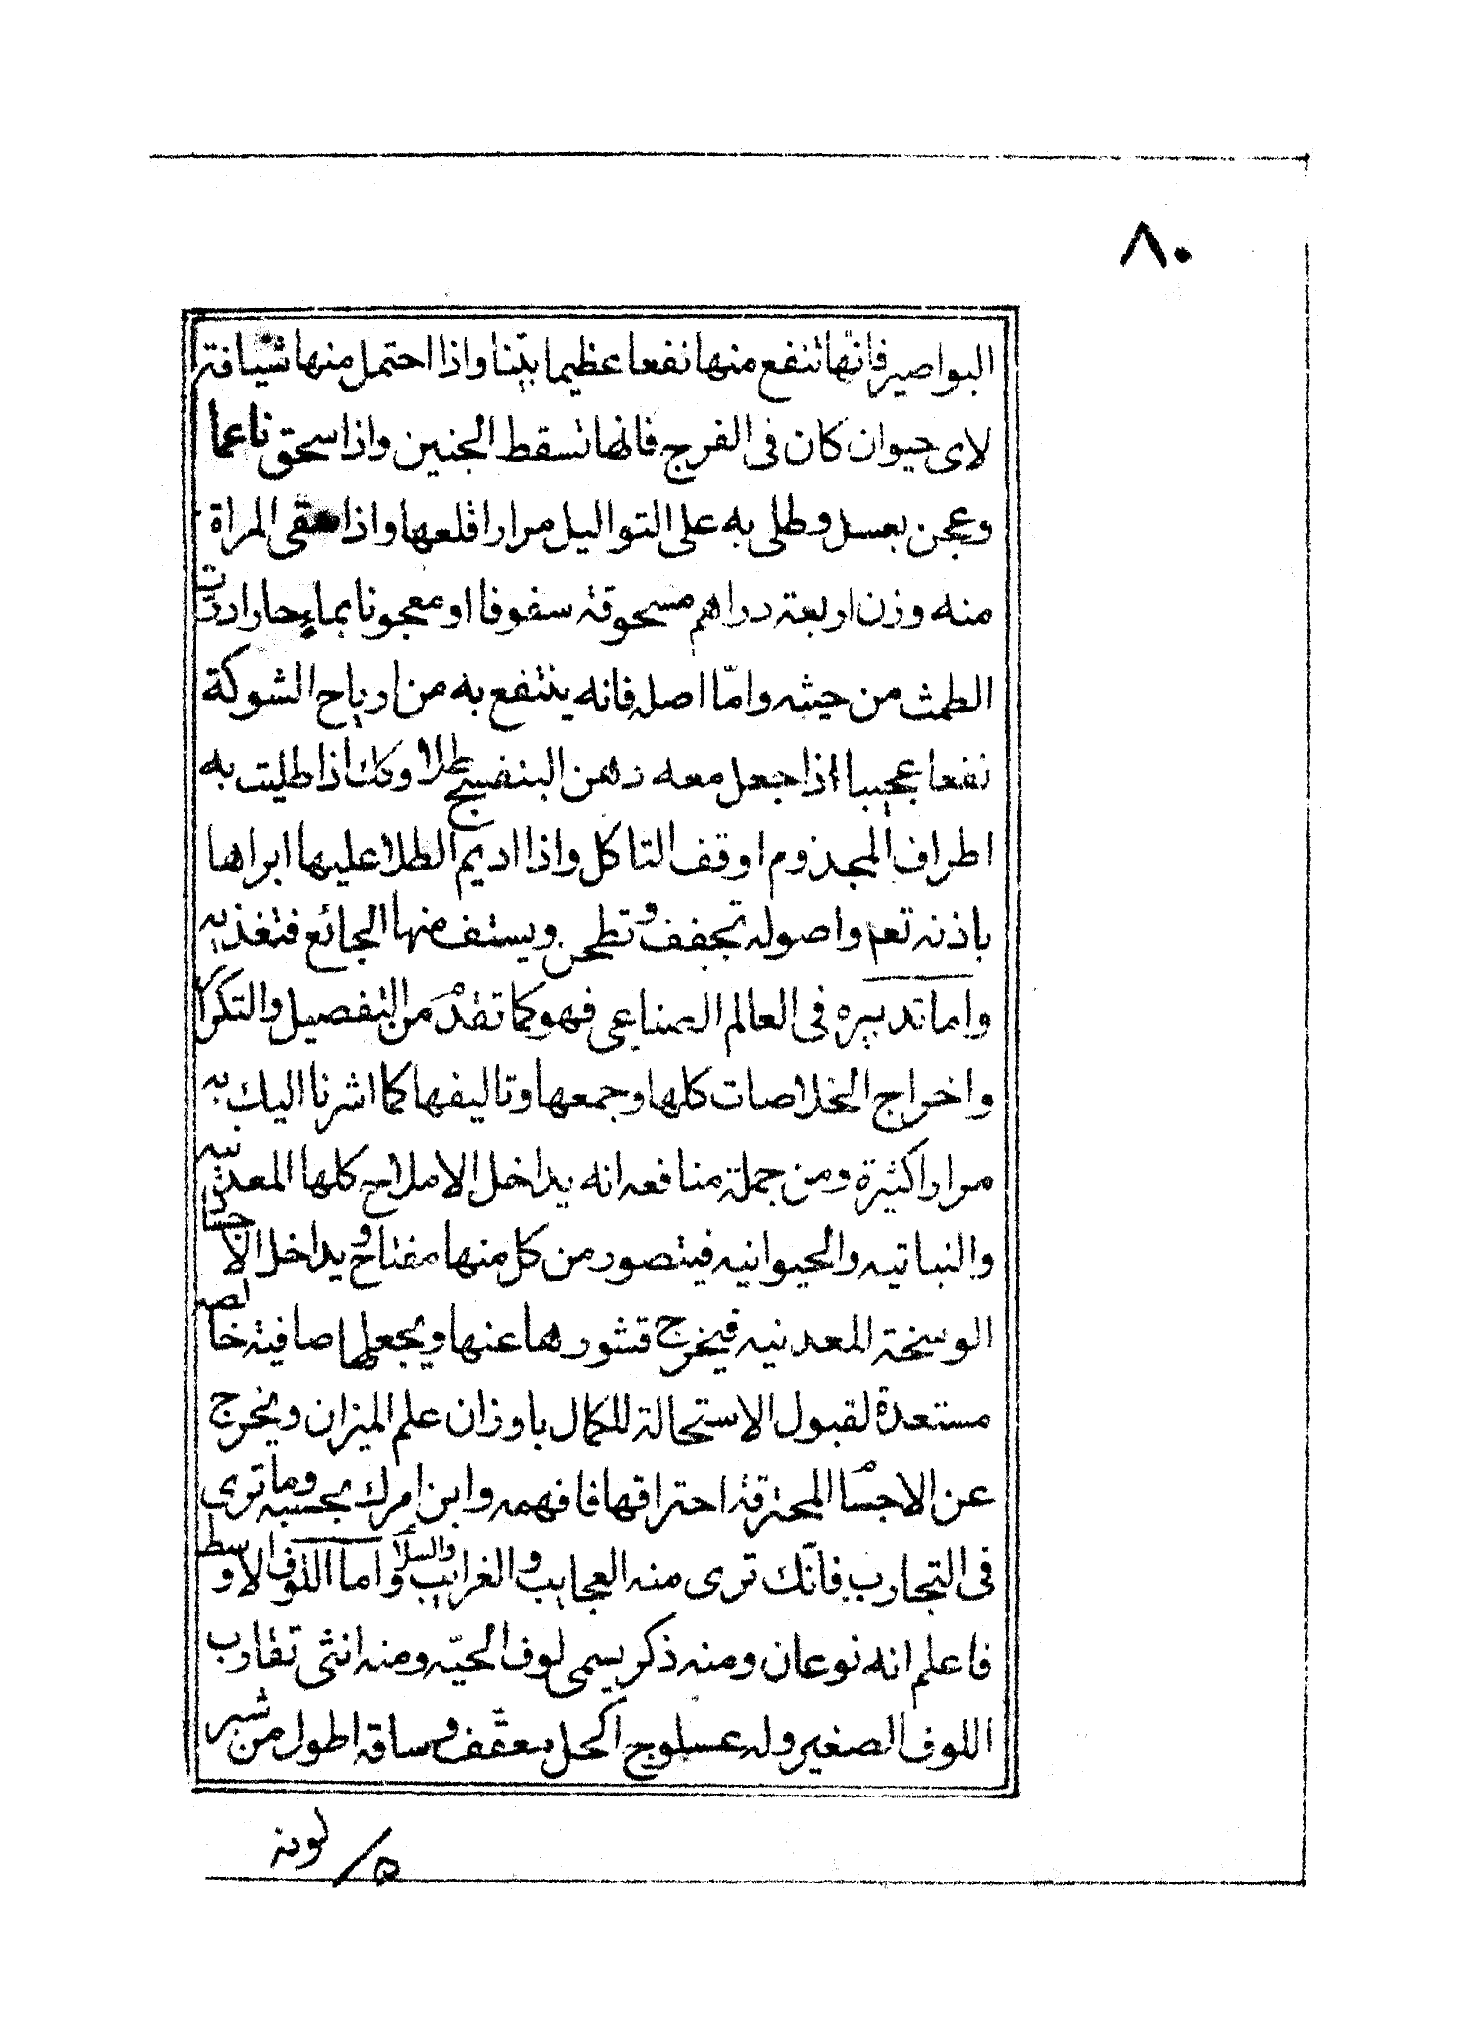 ٨٠
البواصير فانّها تنفع منها نفعا عظيما بيّنا واذا احتمل منها شيافة
لاى حيوان كان فى الفرج فانها تسقط الجنين واذا سحق ناعما
وعجن بعسل وطلى به على التواليل مرارا قلعها واذا سقى المراة
منه وزن اربعة دراهم مسحوقة سفوفا او معجونا بماءٍ حار ادرت
الطمث من حيثه وامّا اصله فانه ينتفع به من ارياح الشوكة
نفعا عجيبا اذا جعل معه دهن البنفسج طلا وكك اذا طليت به
اطراف المجذوم اوقف التاكل واذا اديم الطلا عليها ابراها
باذنه تعم واصوله تجفف وتطحن ويستف منها الجائع فتغذيه
واما تدبيره فى العالم الصناعى فهو كما تقدم من التفصيل والتكرا
واخراج الخلاصات كلها وجمعها وتاليفها كما اشرنا اليك به
مرارا كثيرة ومن جملة منافعه انه يداخل الاملاح كلها المعدنيه
والنباتيه والحيوانيه فيتصور من كل منها مفتاح ويداخل الاجساد
الوسخة المعدنيه فيخرج قشورها عنها ويجعلها صافية خالصة
مستعدة لقبول الاستحالة للكمال باوزان علم الميزان ويخرج
عن الاجسام المحترقة احتراقها فافهمه وابن امرك بحسبه وما ترى
فى التجارب فانّك ترى منه العجايب والغرايب والسلام واما اللوف الاوسط
فاعلم انه نوعان ومنه ذكر يسمى لوف الحيّه ومنه انثى تقارب
اللوف الصغير وله عسلوج اكحل معقّف وساقه اطول من شبر
لونه